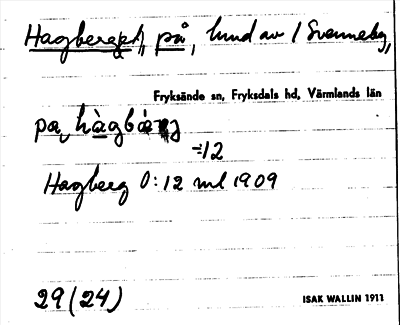 Hagberget, på, lund av / Svenneby,
Fryksände sn, Fryksdals hd, Värmlands län
pa, hàgbár
-12
Hagberg 0:12 ml 1909
29 (24)
ISAK WALLIN 1911